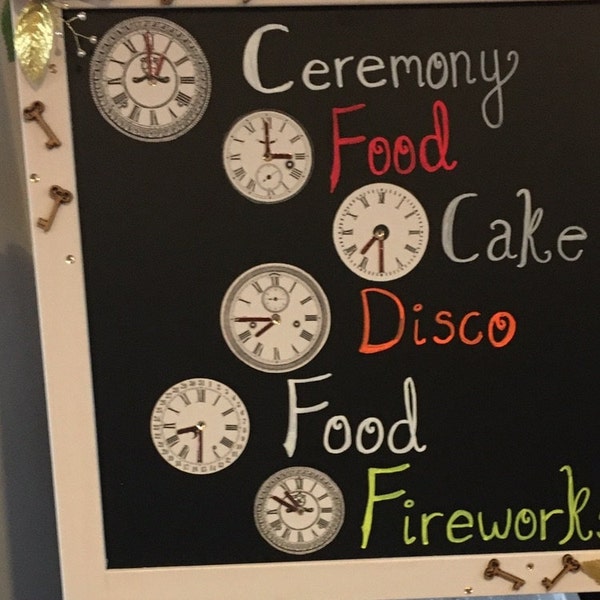 Ceremony
Food
Cake
Disco
Food
Fireworks